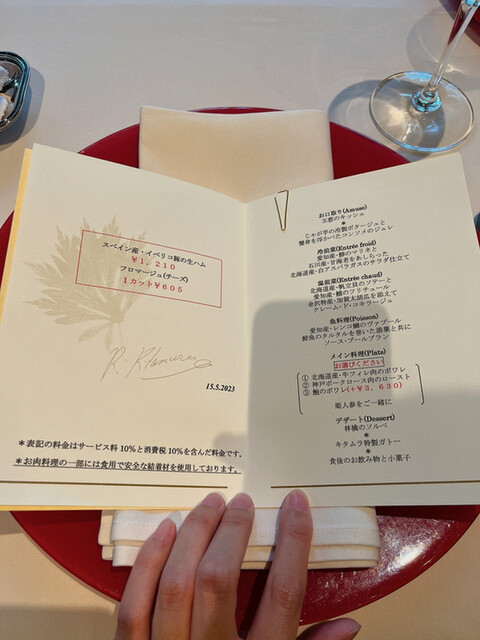 スペイン産・イベリコ豚の生ハム
￥1,210
フロマージュ(チーズ)
1カット￥605
15.5.2023
＊表記の料金はサービス料10%と消費税10%を含んだ料金です。
＊お肉料理の一部には食用で安全な結着材を使用しております。
お口取り(Amuse)
玉葱のキッシュ
＊
じゃが芋の冷製ポタージュと
蟹身を浮かべたコンソメのジュレ
冷前菜(Entrée froid)
愛知産・鰆のマリネと
石川産・甘海老をあしらった
北海道産・白アスパラガスのサラダ仕立て
温前菜(Entrée chaud)
北海道産・帆立貝のソテーと
愛知産・鱧のフリチュール
金沢特産・加賀太胡瓜を添えて
クレーム・ド・コキラージュ
魚料理(Poisson)
愛知産・レンコ鯛のヴァプール
鮮魚のタルタルを巻いた湯葉と共に
ソース・ブールブラン
メイン料理(Plats)
お選びください
① 北海道産・牛フィレ肉のポワレ
② 神戸ポークロース肉のロースト
③ 鮑のポワレ(+￥3,630)
姫人参をご一緒に
デザート(Dessert)
林檎のソルベ
＊
キタムラ特製ガトー
＊
食後のお飲み物と小菓子